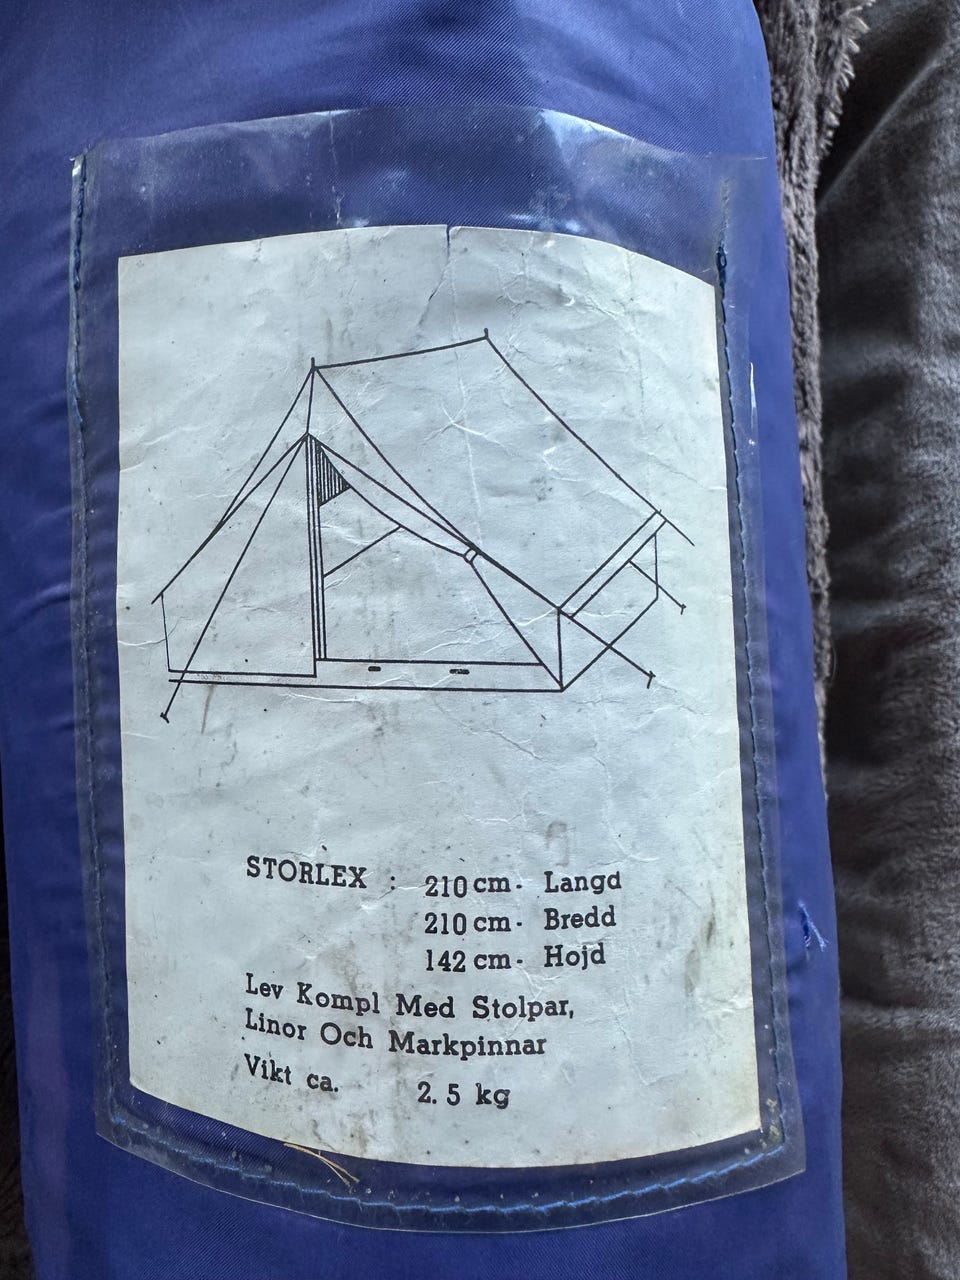 STORLEX : 210 cm. Langd
210 cm. Bredd
142 cm. Hojd
Lev Kompl Med Stolpar,
Linor Och Markpinnar
Vikt ca. 2.5 kg